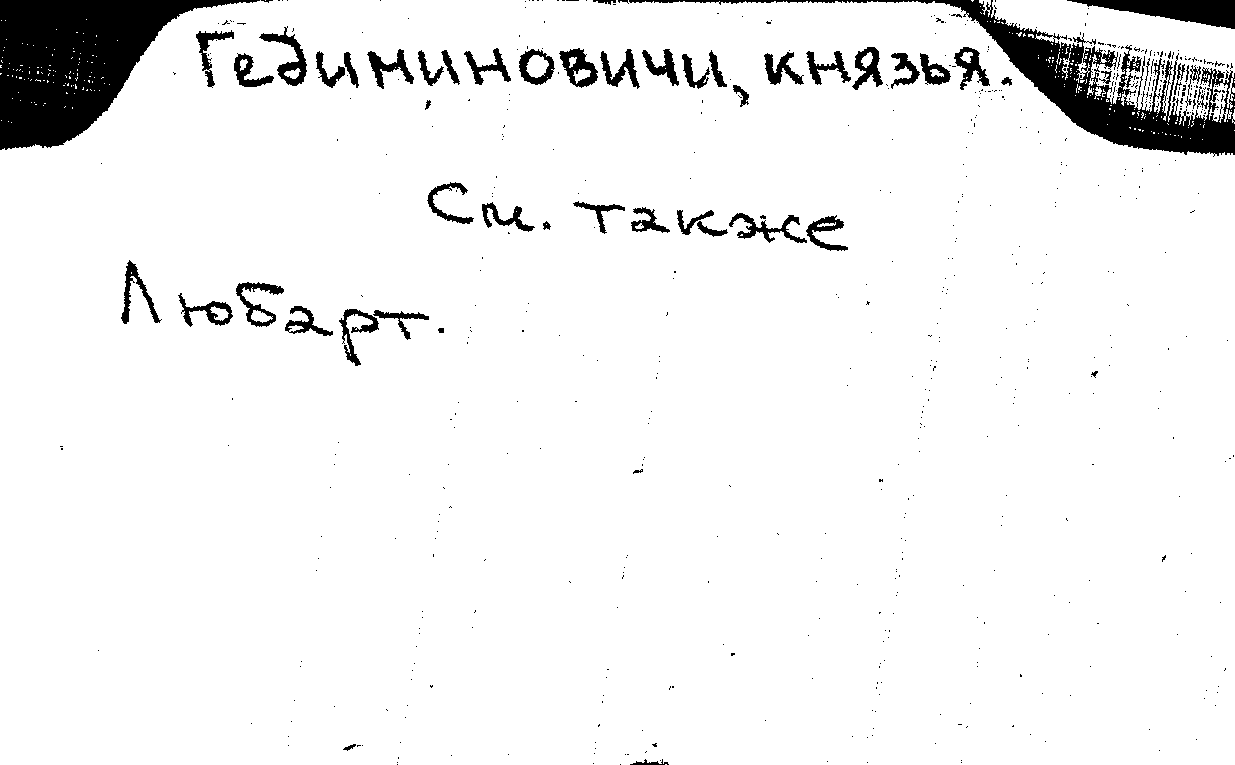 Гедиминовичи, князья.
См. также
Любарт.